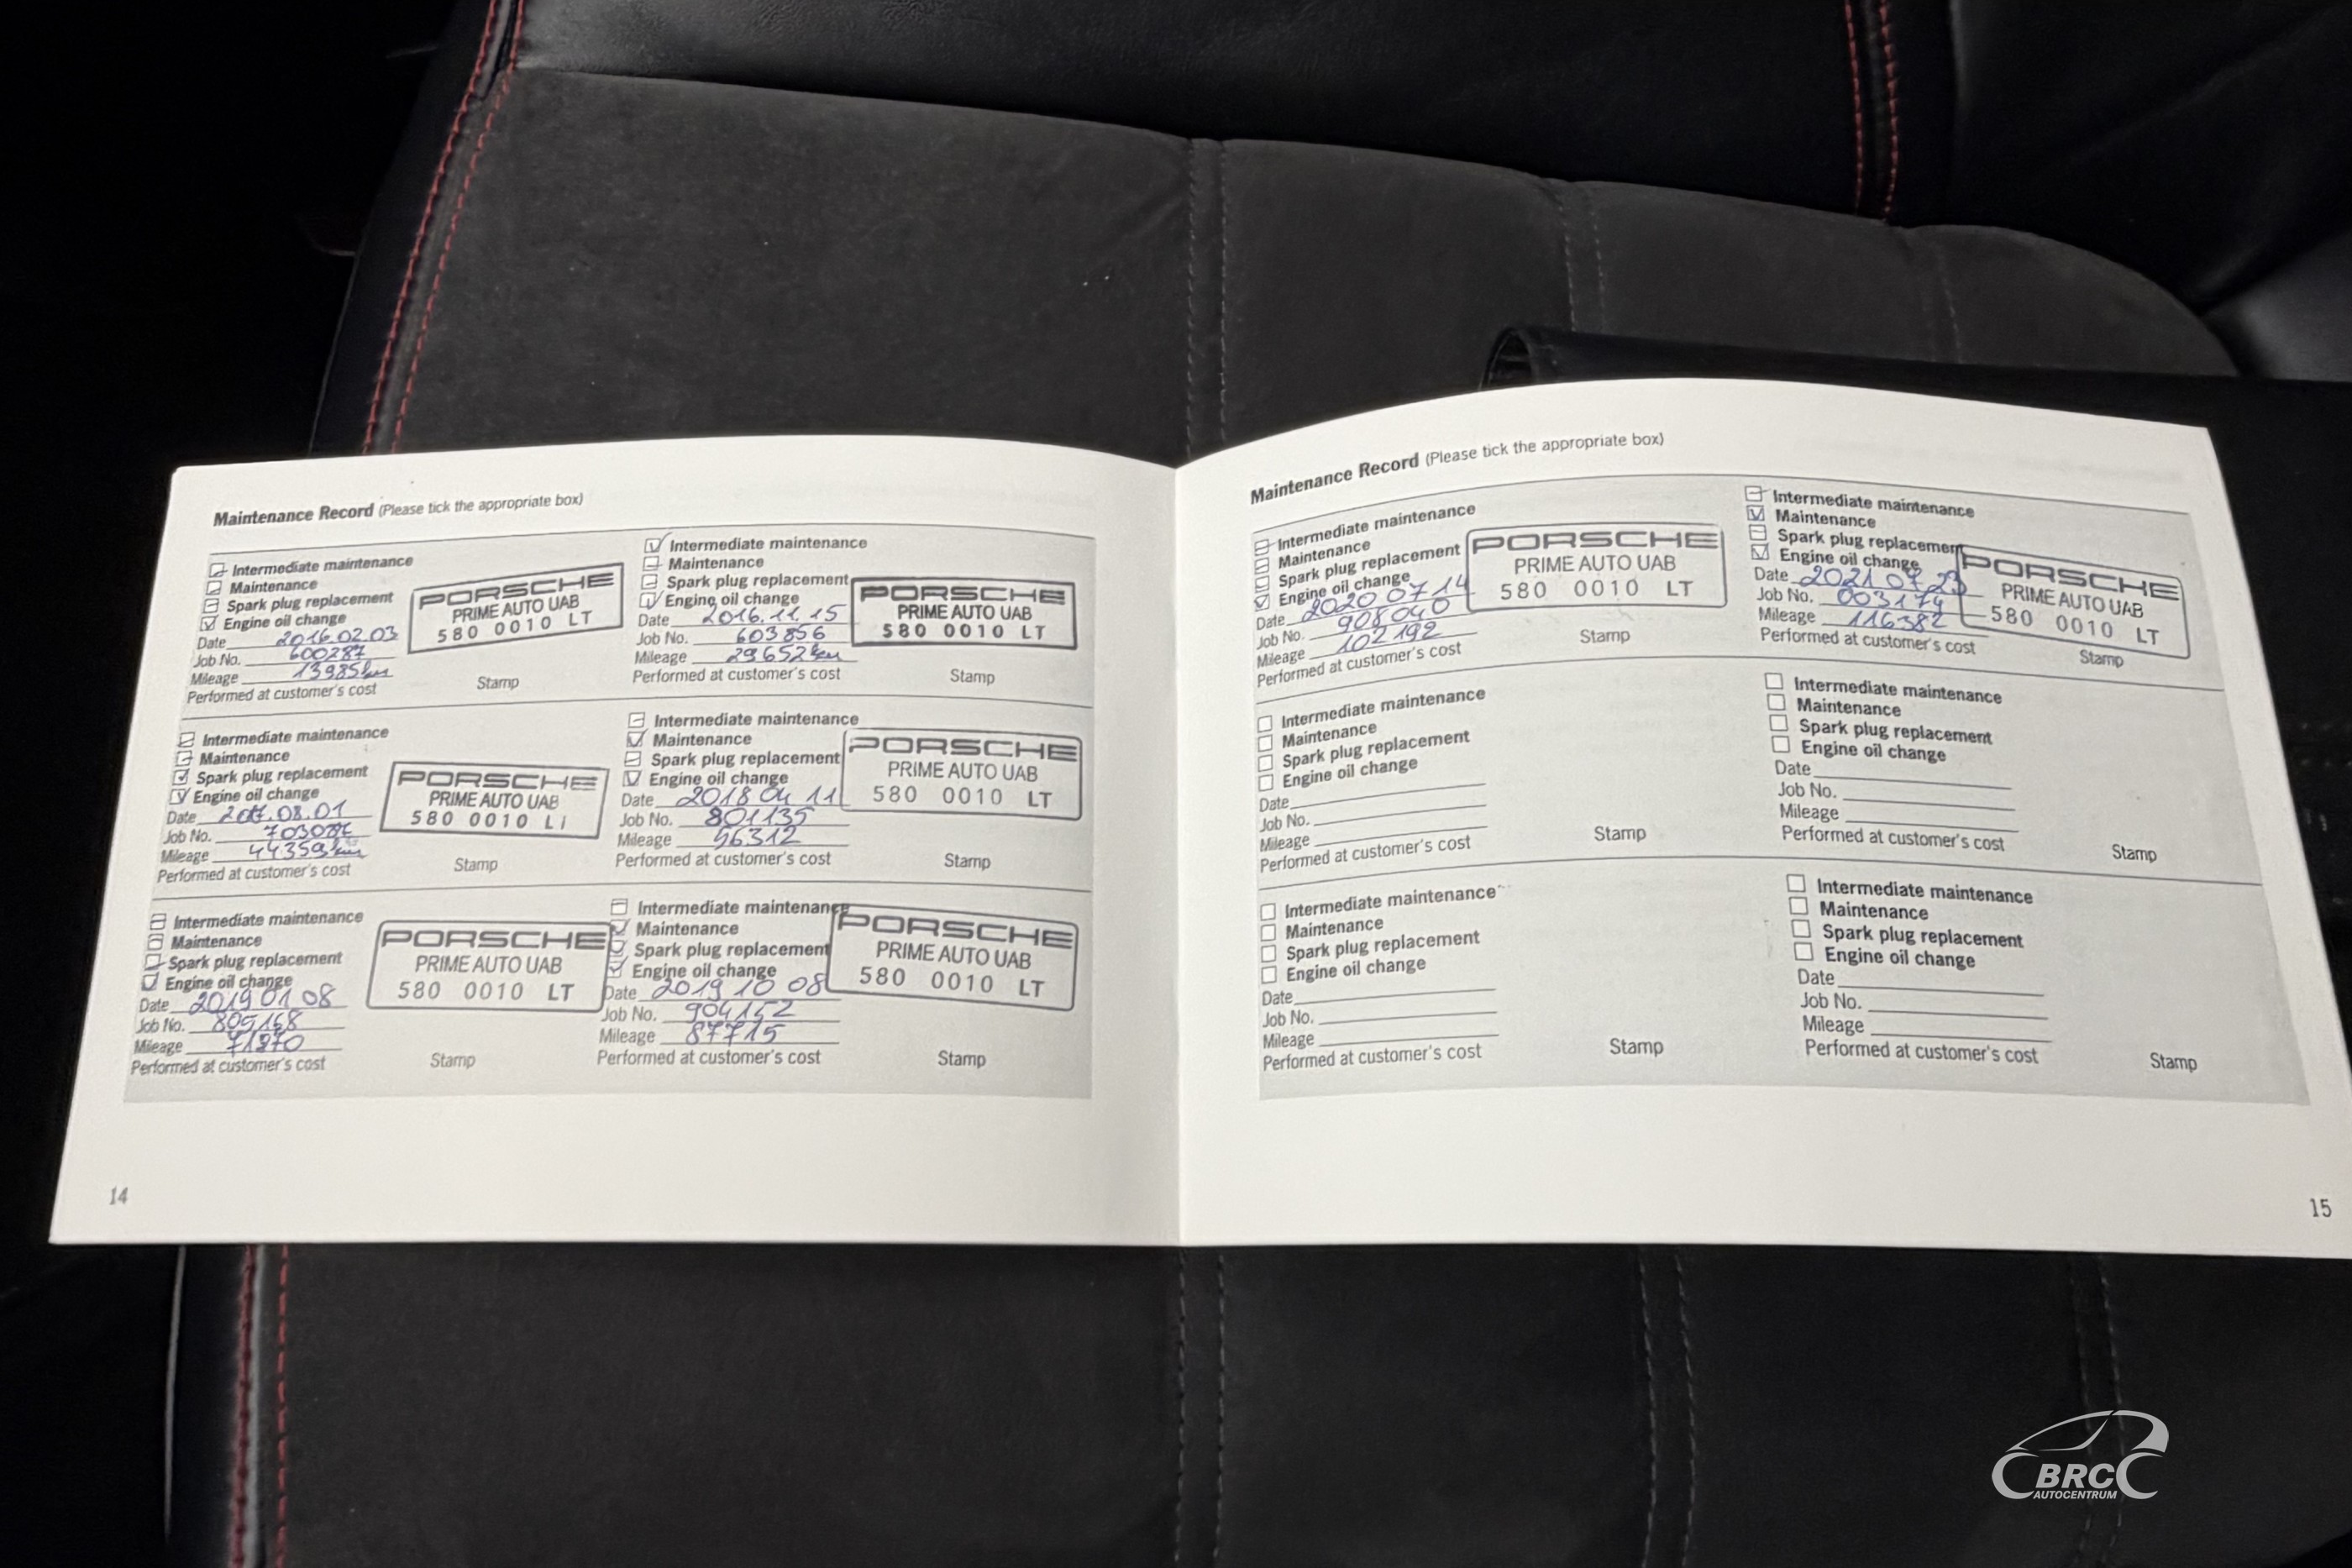 Maintenance Record (Please tick the appropriate box)
Intermediate maintenance
Maintenance
Spark plug replacement
Engine oil change
Date 2016.02.03
Job No. 600287
Mileage 13985km
Performed at customer's cost
PORSCHE
PRIME AUTO UAB
580 0010 LT
Stamp
Intermediate maintenance
Maintenance
Spark plug replacement
Engine oil change
Date 2016.11.15
Job No. 603856
Mileage 29652km
Performed at customer's cost
PORSCHE
PRIME AUTO UAB
580 0010 LT
Stamp
Intermediate maintenance
Maintenance
Spark plug replacement
Engine oil change
Date 2017.08.01
Job No.
Mileage 44359km
Performed at customer's cost
PORSCHE
PRIME AUTO UAB
580 0010
Stamp
Intermediate maintenance
Maintenance
Spark plug replacement
Engine oil change
Date 2018 04 11
Job No. 801135
Mileage 56312
Performed at customer's cost
PORSCHE
PRIME AUTO UAB
580 0010 LT
Stamp
Intermediate maintenance
Maintenance
Spark plug replacement
Engine oil change
Date 2019 01 08
Job No. 805168
Mileage
Performed at customer's cost
PORSCHE
PRIME AUTO UAB
580 0010 LT
Stamp
Intermediate maintenance
Maintenance
Spark plug replacement
Engine oil change
Date 2019 10 08
Job No. 904152
Mileage 87715
Performed at customer's cost
PORSCHE
PRIME AUTO UAB
580 0010 LT
Stamp
14
Maintenance Record (Please tick the appropriate box)
Intermediate maintenance
Maintenance
Spark plug replacement
Engine oil change
Date 2020 07 14
Job No. 908040
Mileage 102192
Performed at customer's cost
PORSCHE
PRIME AUTO UAB
580 0010 LT
Stamp
Intermediate maintenance
Maintenance
Spark plug replacement
Engine oil change
Date 2021 07 23
Job No. 003174
Mileage 116382
Performed at customer's cost
PORSCHE
PRIME AUTO UAB
580 0010 LT
Stamp
Intermediate maintenance
Maintenance
Spark plug replacement
Engine oil change
Date
Job No.
Mileage
Performed at customer's cost
Stamp
Intermediate maintenance
Maintenance
Spark plug replacement
Engine oil change
Date
Job No.
Mileage
Performed at customer's cost
Stamp
Intermediate maintenance
Maintenance
Spark plug replacement
Engine oil change
Date
Job No.
Mileage
Performed at customer's cost
Stamp
Intermediate maintenance
Maintenance
Spark plug replacement
Engine oil change
Date
Job No.
Mileage
Performed at customer's cost
Stamp
15
BRC
AUTOCENTRUM